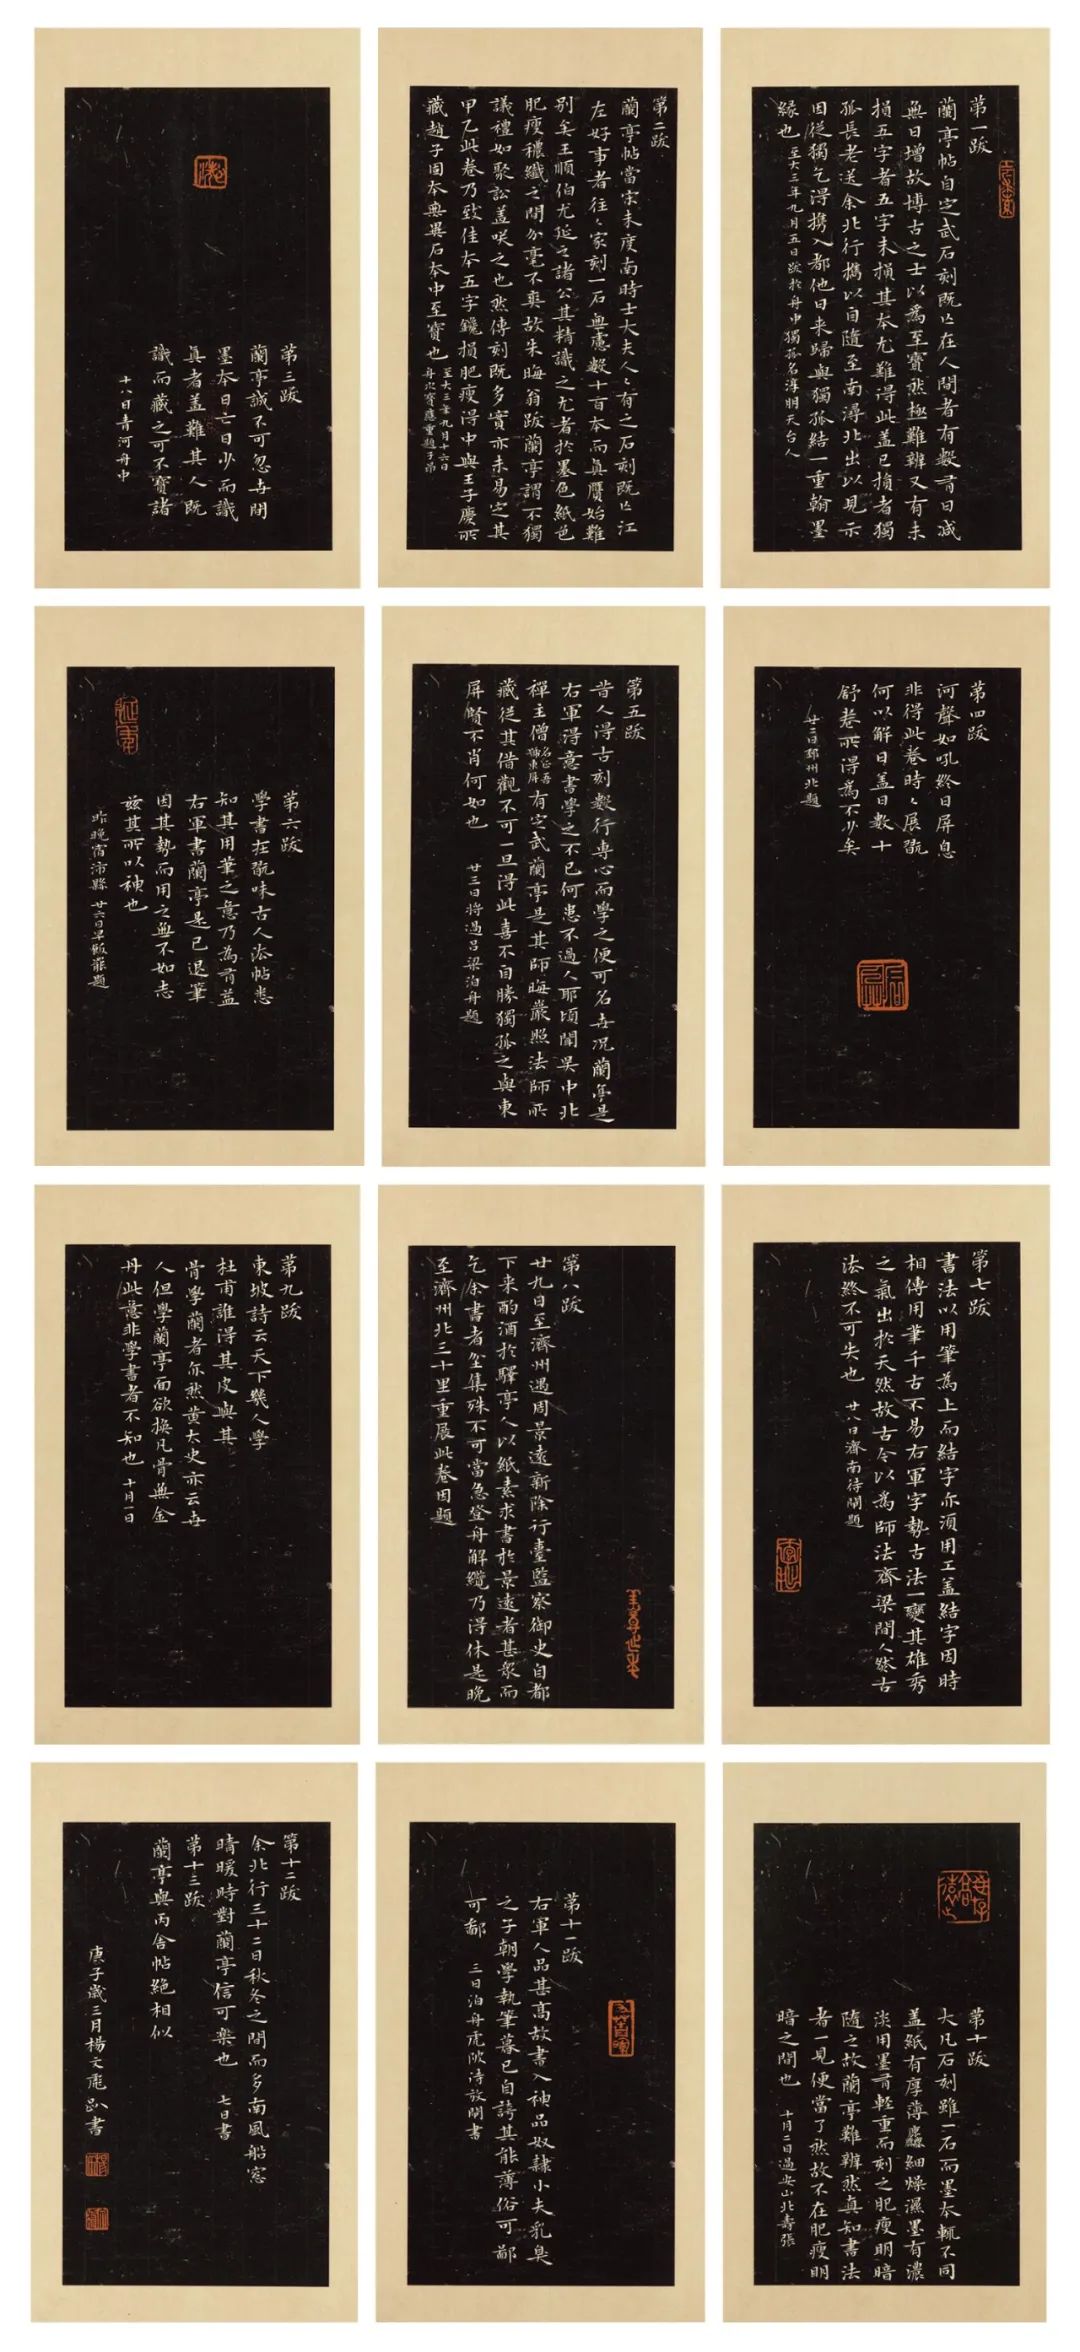 第一跋
蘭亭帖自定武石刻既亡在人間者有數有日減
無日增故博古之士以為至寶然極難辨又有未
損五字者五字未損其本尤難得此盖已損者獨
孤長老送余北行攜以自隨至南潯北出以見示
因從獨孤乞得攜入都他日来歸與獨孤結一重翰墨
緣也 至大三年九月五日跋於舟中獨孤名淳朋天台人
第二跋
蘭亭帖當宋未度南時士大夫人人有之石刻既亡江
左好事者往往家刻一石無慮數十百本而真贋始難
別矣王順伯尤延之諸公其精識之尤者於墨色紙色
肥瘦穠纖之間分毫不爽故朱晦翁跋蘭亭謂不獨
議禮如聚訟盖咲之也然傳刻既多實亦未易定其
甲乙此卷乃致佳本五字鑱損肥瘦得中與王子慶所
藏趙子固本無異石本中至寶也 至大三年九月十六日
舟次寶應重題子昂
第三跋
蘭亭誠不可忽世間
墨本日亡日少而識
真者盖難其人既
識而藏之可不寶諸
十八日清河舟中
第四跋
河聲如吼終日屏息
非得此卷時時展翫
何以解日盖日數十
舒卷所得為不少矣
廿二日邳州北題
第五跋
昔人得古刻數行專心而學之便可名世况蘭亭是
右軍得意書學之不已何患不過人耶頃聞吳中北
禪主僧名正吾號東屏有定武蘭亭是其師晦巖照法師所
藏從其借觀不可一旦得此喜不自勝獨孤之與東
屏賢不肖何如也 廿三日將過呂梁泊舟題
第六跋
學書在翫味古人法帖悉
知其用筆之意乃為有益
右軍書蘭亭是已退筆
因其勢而用之無不如志
茲其所以神也
昨晚宿沛縣 廿六日早飯罷題
第七跋
書法以用筆為上而結字亦須用工盖結字因時
相傳用筆千古不易右軍字勢古法一變其雄秀
之氣出於天然故古今以為師法齊梁間人然古
法終不可失也 廿八日濟南待閘題
第八跋
廿九日至濟州遇周景遠新除行臺監察御史自都
下来酌酒於驛亭人以紙素求書於景遠者甚衆而
乞余書者坌集殊不可當急登舟解纜乃得休是晚
至濟州北三十里重展此卷因題
第九跋
東坡詩云天下幾人學
杜甫誰得其皮與其
骨學蘭者亦然黃大史亦云世
人但學蘭亭面欲換凡骨無金
丹此意非學書者不知也 十月一日
第十跋
大凡石刻雖一石而墨本輒不同
盖紙有厚薄麤細燥濕墨有濃
淡用墨有輕重而刻之肥瘦明暗
隨之故蘭亭難辨然真知書法
者一見便當了然故不在肥瘦明
暗之間也 十月二日過安山北壽張
第十一跋
右軍人品甚高故書入神品奴隸小夫乳臭
之子朝學執筆暮已自誇其能薄俗可鄙
可鄙 三日泊舟虎陂待放閘書
第十二跋
余北行三十二日秋冬之間而多南風船窓
晴暖時對蘭亭信可樂也 七日書
第十三跋
蘭亭與丙舍帖絶相似
庚子歲三月楊文彪趾書